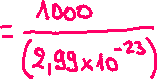 = 1000 / (2,99×10^-23)